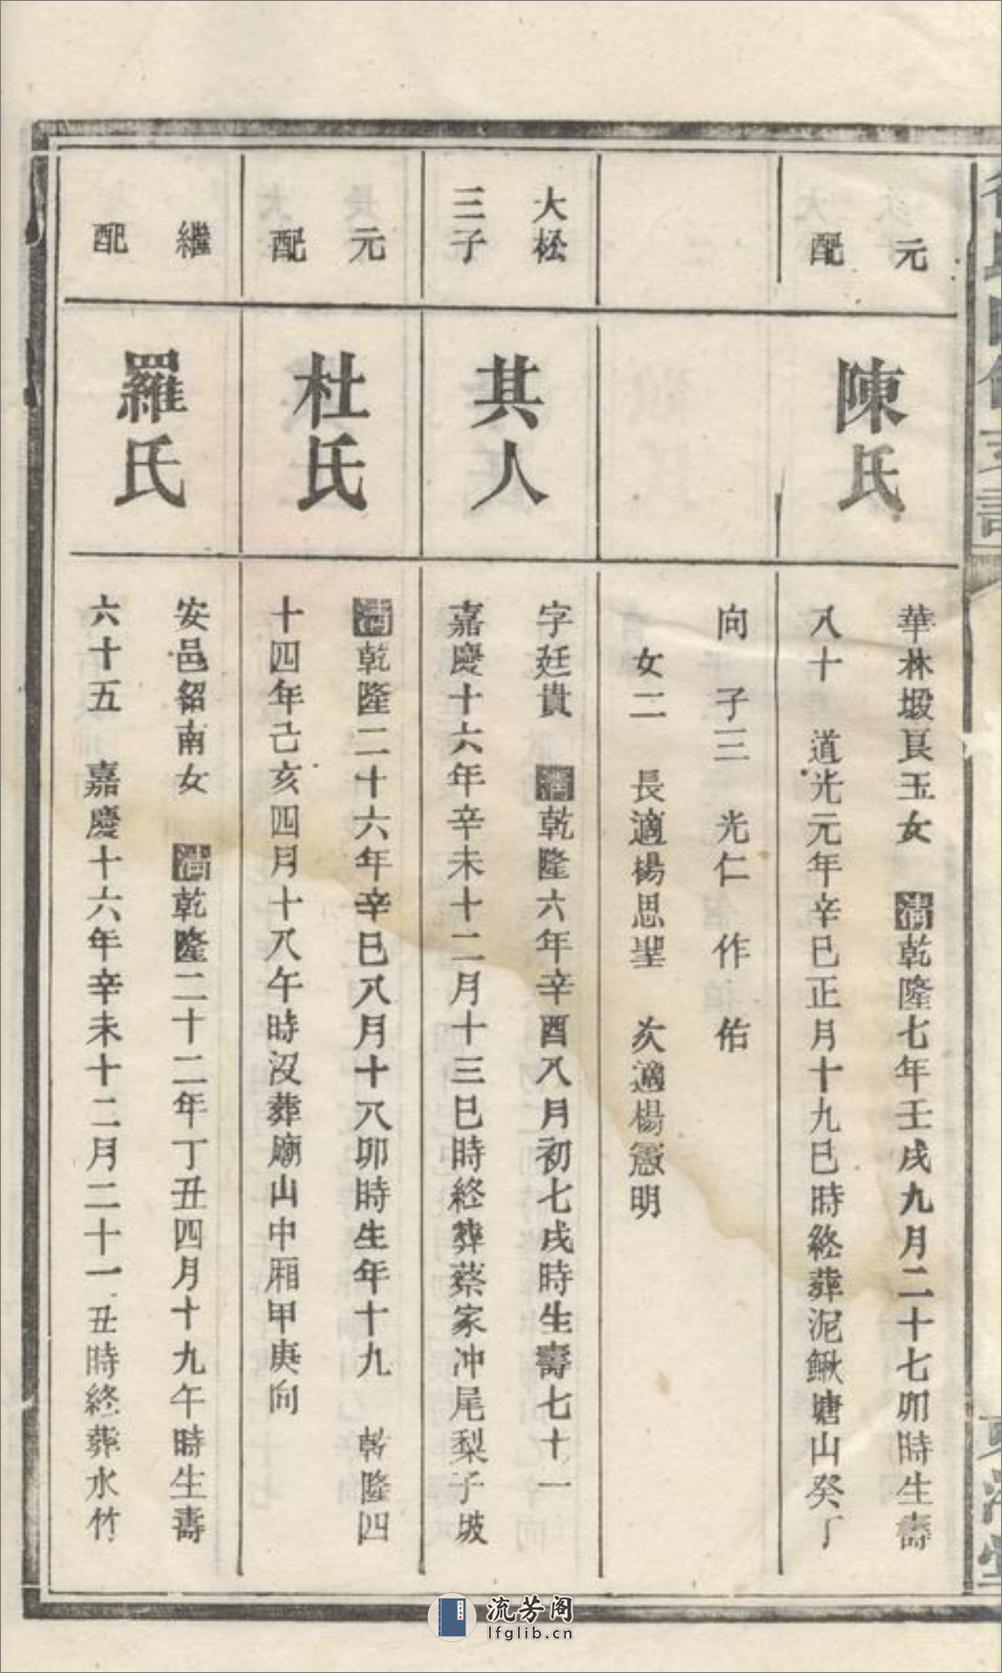 元配
陳氏
華林塅良玉女 清乾隆七年壬戌九月二十七卯時生壽
八十 道光元年辛巳正月十九巳時終葬泥鰍塘山癸丁
向 子三 光仁 作 佑
女二 長適楊思聖 次適楊憲明
大松三子
其人
字廷貴 清乾隆六年辛酉八月初七戌時生壽七十一
嘉慶十六年辛未十二月十三巳時終葬蔡家冲尾梨子坡
元配
杜氏
清乾隆二十六年辛巳八月十八卯時生年十九 乾隆四
十四年己亥四月十八午時没葬廟山中厢甲庚向
繼配
羅氏
安邑紹南女 清乾隆二十二年丁丑四月十九午時生壽
六十五 嘉慶十六年辛未十二月二十一丑時終葬水竹
流芳阁
lfglib.cn